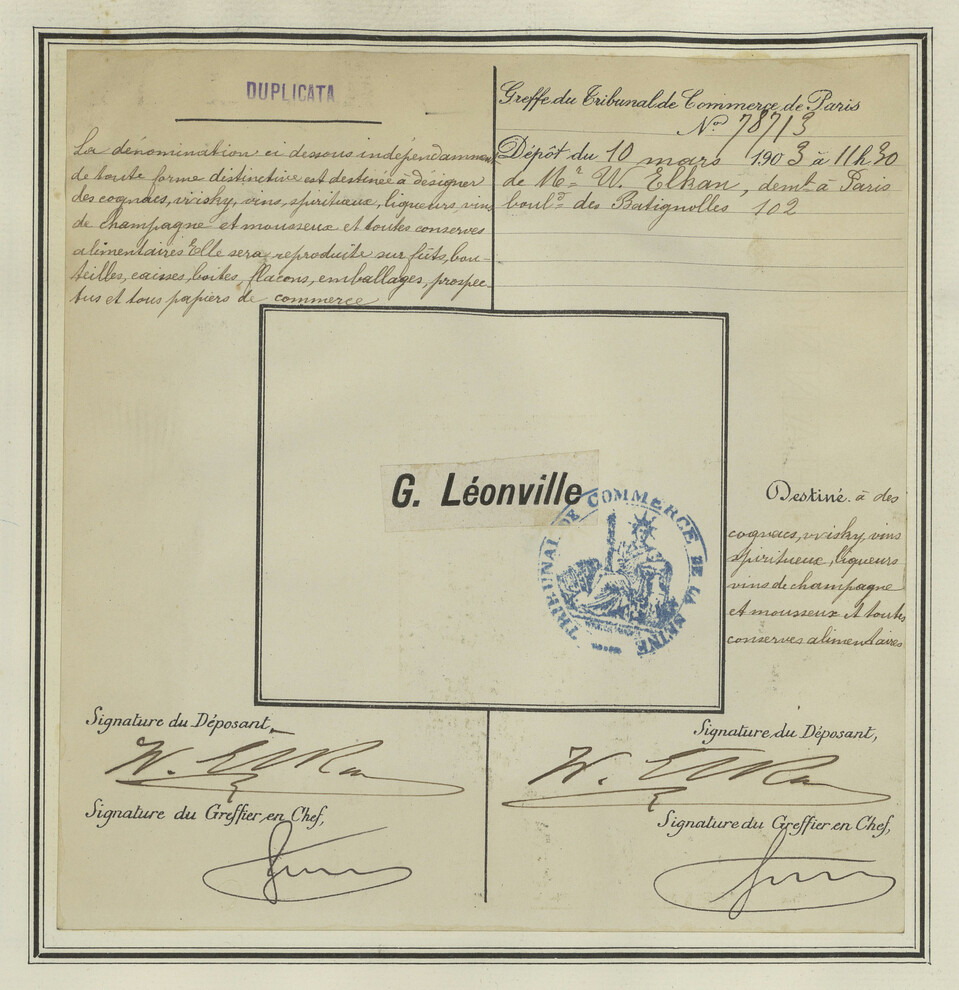 DUPLICATA
La dénomination ci dessous indépendamment
de toute forme distinctive est destinée à désigner
des cognacs, wisky, vins, spiritueux, liqueurs, vins
de champagne et mousseux et toutes conserves
alimentaires Elle sera reproduite sur fûts, bou-
teilles, caisses, boites, flacons, emballages, prospec-
tus et tous papiers de commerce
Greffe du Tribunal de Commerce de Paris
No 78713
Dépôt du 10 mars 1903 à 11h30
de Mr W. Elkan, demt à Paris
boulD des Batignolles 102
G. Léonville
TRIBUNAL DE COMMERCE DE LA SEINE
Destiné à des
cognacs, wisky, vins
spiritueux, liqueurs
vins de champagne
et mousseux et toutes
conserves alimentaires
Signature du Déposant,
W. Elkan
Signature du Greffier en Chef,
Signature du Déposant,
W. Elkan
Signature du Greffier en Chef,